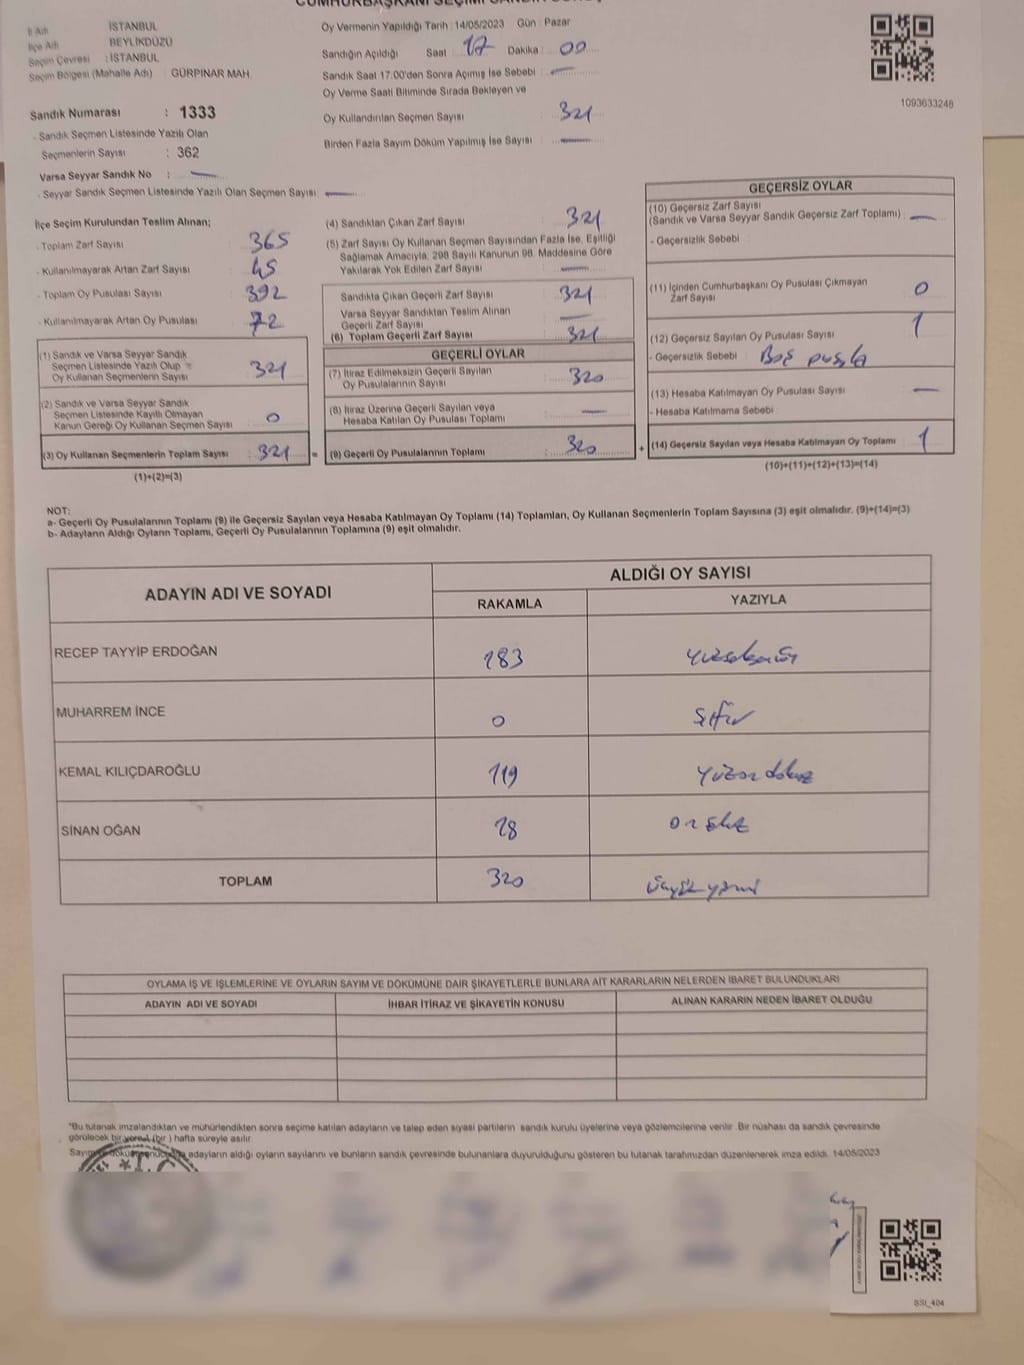 İl Adı İSTANBUL
İlçe Adı BEYLİKDÜZÜ
Seçim Çevresi : İSTANBUL
Seçim Bölgesi (Mahalle Adı) : GÜRPINAR MAH.
Sandık Numarası : 1333
- Sandık Seçmen Listesinde Yazılı Olan
Seçmenlerin Sayısı : 362
Varsa Seyyar Sandık No : —
- Seyyar Sandık Seçmen Listesinde Yazılı Olan Seçmen Sayısı: —
Oy Vermenin Yapıldığı Tarih : 14/05/2023 Gün : Pazar
Sandığın Açıldığı Saat : 17 Dakika : 00
Sandık Saat 17:00'den Sonra Açımış İse Sebebi : —
Oy Verme Saati Bitiminde Sırada Bekleyen ve
Oy Kullandırılan Seçmen Sayısı : 321
Birden Fazla Sayım Döküm Yapılmış İse Sayısı : —
1093633248
İlçe Seçim Kurulundan Teslim Alınan;
- Toplam Zarf Sayısı : 365
- Kullanılmayarak Artan Zarf Sayısı : 45
- Toplam Oy Pusulası Sayısı : 392
- Kullanılmayarak Artan Oy Pusulası : 72
(1) Sandık ve Varsa Seyyar Sandık
Seçmen Listesinde Yazılı Olup
Oy Kullanan Seçmenlerin Sayısı : 321
(2) Sandık ve Varsa Seyyar Sandık
Seçmen Listesinde Kayıtlı Olmayan
Kanun Gereği Oy Kullanan Seçmen Sayısı : 0
(3) Oy Kullanan Seçmenlerin Toplam Sayısı : 321
(1)+(2)=(3)
(4) Sandıktan Çıkan Zarf Sayısı : 321
(5) Zarf Sayısı Oy Kullanan Seçmen Sayısından Fazla İse, Eşitliği
Sağlamak Amacıyla; 298 Sayılı Kanunun 98. Maddesine Göre
Yakılarak Yok Edilen Zarf Sayısı : —
Sandıkta Çıkan Geçerli Zarf Sayısı : 321
Varsa Seyyar Sandıktan Teslim Alınan
Geçerli Zarf Sayısı : —
(6) Toplam Geçerli Zarf Sayısı : 321
GEÇERLİ OYLAR
(7) İtiraz Edilmeksizin Geçerli Sayılan
Oy Pusulalarının Sayısı : 320
(8) İtiraz Üzerine Geçerli Sayılan veya
Hesaba Katılan Oy Pusulası Toplamı : —
= (9) Geçerli Oy Pusulalarının Toplamı : 320
GEÇERSİZ OYLAR
(10) Geçersiz Zarf Sayısı
(Sandık ve Varsa Seyyar Sandık Geçersiz Zarf Toplamı) : —
- Geçersizlik Sebebi :
(11) İçinden Cumhurbaşkanı Oy Pusulası Çıkmayan
Zarf Sayısı : 0
(12) Geçersiz Sayılan Oy Pusulası Sayısı : 1
- Geçersizlik Sebebi : Boş pusula
(13) Hesaba Katılmayan Oy Pusulası Sayısı : —
- Hesaba Katılmama Sebebi
+ (14) Geçersiz Sayılan veya Hesaba Katılmayan Oy Toplamı : 1
(10)+(11)+(12)+(13)=(14)
NOT:
a- Geçerli Oy Pusulalarının Toplamı (9) ile Geçersiz Sayılan veya Hesaba Katılmayan Oy Toplamı (14) Toplamları, Oy Kullanan Seçmenlerin Toplam Sayısına (3) eşit olmalıdır. (9)+(14)=(3)
b- Adayların Aldığı Oyların Toplamı, Geçerli Oy Pusulalarının Toplamına (9) eşit olmalıdır.
ADAYIN ADI VE SOYADI ALDIĞI OY SAYISI
RAKAMLA YAZIYLA
RECEP TAYYİP ERDOĞAN 183
MUHARREM İNCE 0 sıfır
KEMAL KILIÇDAROĞLU 119 yüzondokuz
SİNAN OĞAN 18 onsekiz
TOPLAM 320 üçyüzyirmi
OYLAMA İŞ VE İŞLEMLERİNE VE OYLARIN SAYIM VE DÖKÜMÜNE DAİR ŞİKAYETLERLE BUNLARA AİT KARARLARIN NELERDEN İBARET BULUNDUKLARI
ADAYIN ADI VE SOYADI İHBAR İTİRAZ VE ŞİKAYETİN KONUSU ALINAN KARARIN NEDEN İBARET OLDUĞU
*Bu tutanak imzalandıktan ve mühürlendikten sonra seçime katılan adayların ve talep eden siyasi partilerin sandık kurulu üyelerine veya gözlemcilerine verilir. Bir nüshası da sandık çevresinde
görülecek bir yere 1 (bir ) hafta süreyle asılır.
adayların aldığı oyların sayılarını ve bunların sandık çevresinde bulunanlara duyurulduğunu gösteren bu tutanak tarafımızdan düzenlenerek imza edildi. 14/05/2023
BSI_404